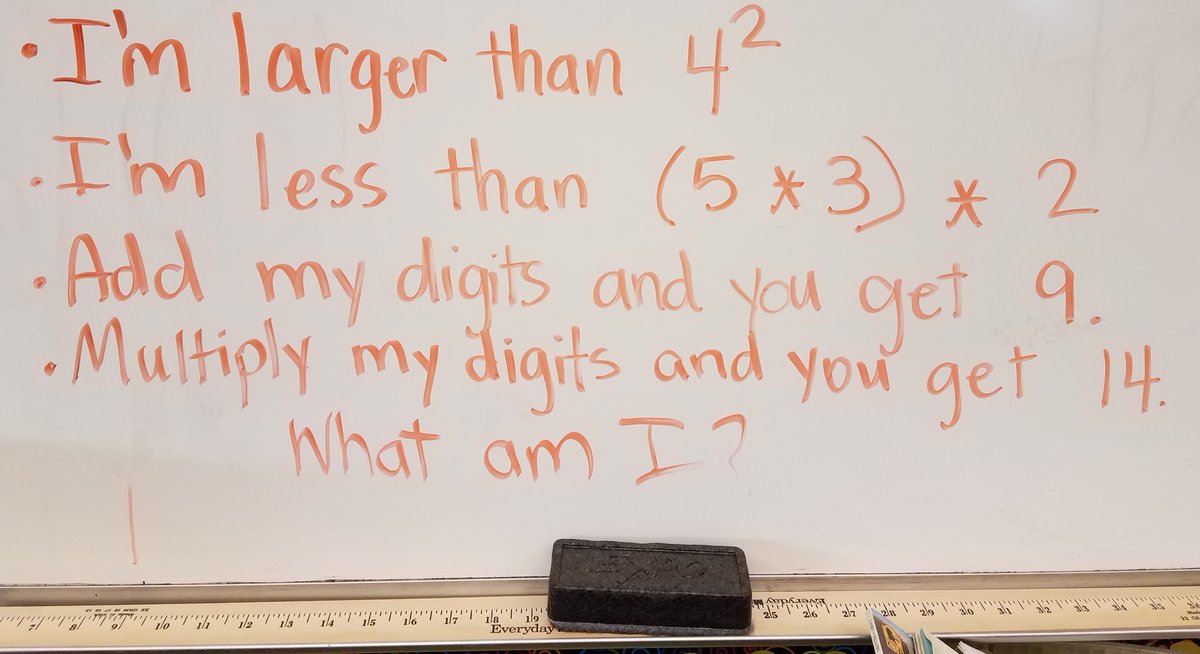 • I'm larger than 4²
• I'm less than (5 * 3) * 2
• Add my digits and you get 9.
• Multiply my digits and you get 14.
What am I?
EXPO
7 8 9 10 11 12 13 14 15 16 17 18 19 25 26 27 28 29 30 31 32 33 34 35
Everyday
Everyday